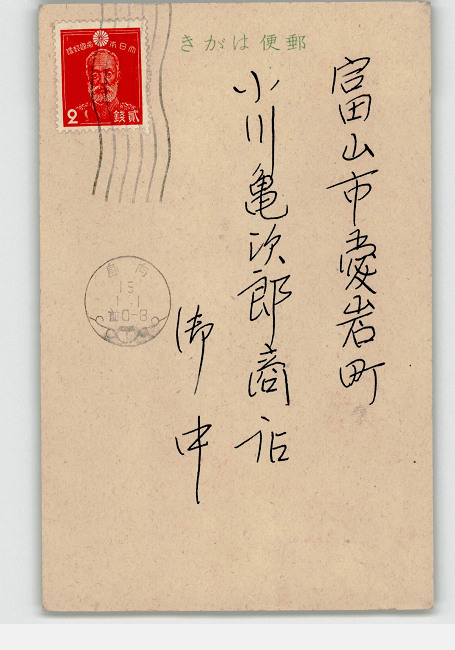 郵便はがき
大日本帝國郵便
2
貳錢
富山市愛岩町
小川亀次郎商店
御中
15
1.1